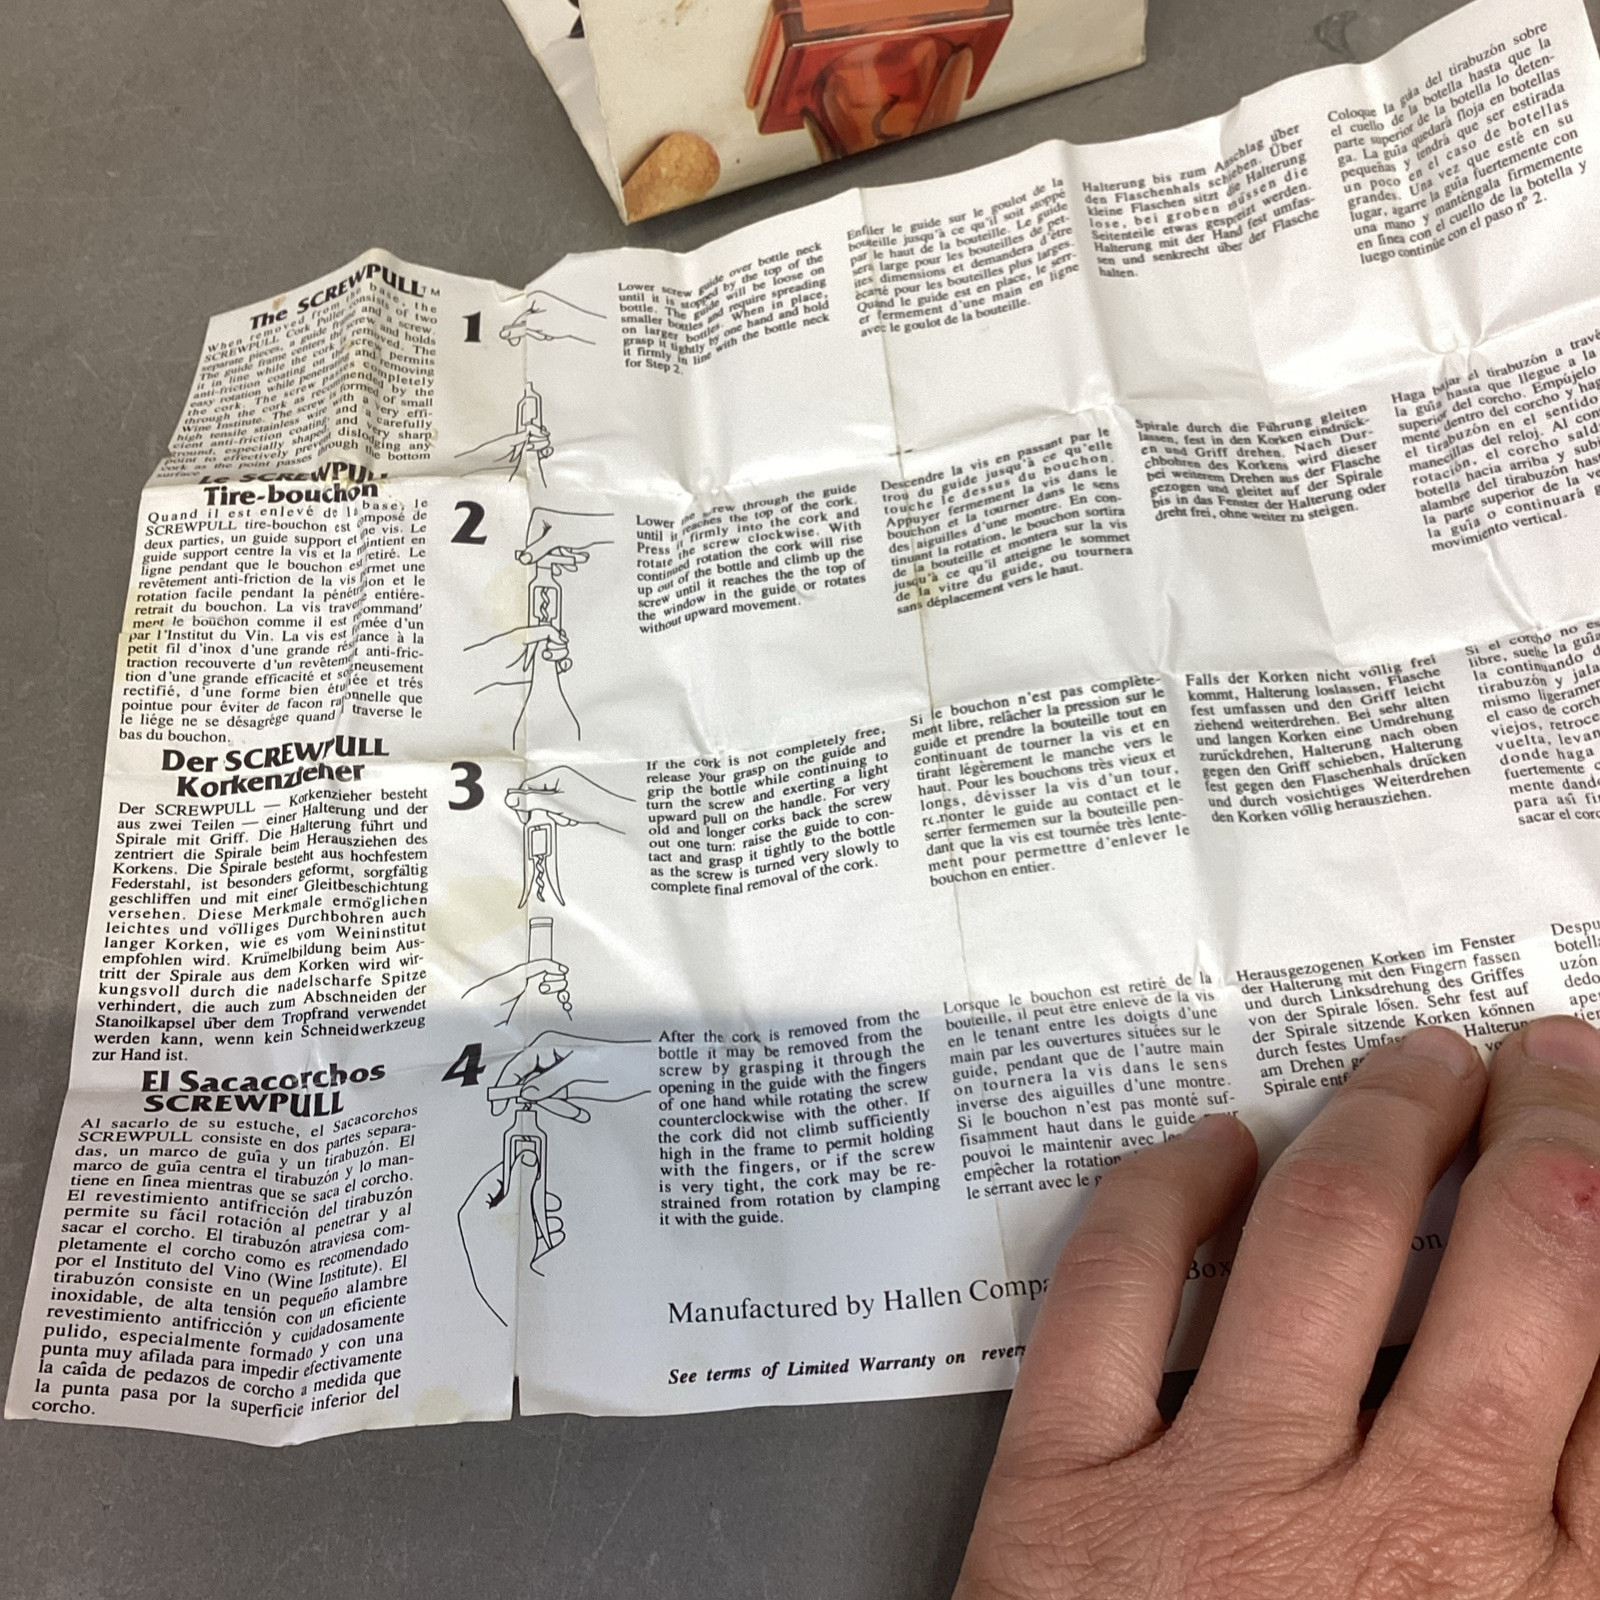 The SCREWPULL™
When removed from the base, the
SCREWPULL Cork Puller consists of two
separate pieces, a guide frame and a screw.
The guide frame centers the screw and holds
it in line while the cork is removed. The
anti-friction coating on the screw permits
easy rotation while penetrating and removing
the cork. The screw passes completely
through the cork as recommended by the
Wine Institute. The screw is formed of small
high tensile stainless wire with a very effi-
cient anti-friction coating, and a carefully
ground, especially shaped, and very sharp
point to effectively prevent dislodging any
cork as the point passes through the bottom
surface.
Le SCREWPULL
Tire-bouchon
Quand il est enlevé de la base, le
SCREWPULL tire-bouchon est composé de
deux parties, un guide support et une vis. Le
guide support centre la vis et la maintient en
ligne pendant que le bouchon est retiré. Le
revêtement anti-friction de la vis permet une
rotation facile pendant la pénétration et le
retrait du bouchon. La vis traverse entiére-
ment le bouchon comme il est recommand'
par l'Institut du Vin. La vis est formée d'un
petit fil d'inox d'une grande résistance à la
traction recouverte d'un revêtement anti-fric-
tion d'une grande efficacité et soigneusement
rectifié, d'une forme bien étudiée et trés
pointue pour éviter de facon rationnelle que
le liége ne se désagrége quand traverse le
bas du bouchon.
Der SCREWPULL
Korkenzieher
Der SCREWPULL — Korkenzieher besteht
aus zwei Teilen — einer Halterung und der
Spirale mit Griff. Die Halterung führt und
zentriert die Spirale beim Herausziehen des
Korkens. Die Spirale besteht aus hochfestem
Federstahl, ist besonders geformt, sorgfältig
geschliffen und mit einer Gleitbeschichtung
versehen. Diese Merkmale ermöglichen
leichtes und völliges Durchbohren auch
langer Korken, wie es vom Weininstitut
empfohlen wird. Krümelbildung beim Aus-
tritt der Spirale aus dem Korken wird wir-
kungsvoll durch die nadelscharfe Spitze
verhindert, die auch zum Abschneiden der
Stanoilkapsel über dem Tropfrand verwendet
werden kann, wenn kein Schneidwerkzeug
zur Hand ist.
El Sacacorchos
SCREWPULL
Al sacarlo de su estuche, el Sacacorchos
SCREWPULL consiste en dos partes separa-
das, un marco de guía y un tirabuzón. El
marco de guía centra el tirabuzón y lo man-
tiene en línea mientras que se saca el corcho.
El revestimiento antifricción del tirabuzón
permite su fácil rotación al penetrar y al
sacar el corcho. El tirabuzón atraviesa com-
pletamente el corcho como es recomendado
por el Instituto del Vino (Wine Institute). El
tirabuzón consiste en un pequeño alambre
inoxidable, de alta tensión con un eficiente
revestimiento antifricción y cuidadosamente
pulido, especialmente formado y con una
punta muy afilada para impedir efectivamente
la caída de pedazos de corcho a medida que
la punta pasa por la superficie inferior del
corcho.
1
Lower screw guide over bottle neck
until it is stopped by the top of the
bottle. The guide will be loose on
smaller bottles and require spreading
on larger bottles. When in place,
grasp it tightly by one hand and hold
it firmly in line with the bottle neck
for Step 2.
Enfiler le guide sur le goulot de la
bouteille jusqu'à ce qu'il soit stoppé
par le haut de la bouteille. Le guide
sera large pour les bouteilles de pet-
ites dimensions et demandera d'être
écarté pour les bouteilles plus larges.
Quand le guide est en place, le serr-
er fermement d'une main en ligne
avec le goulot de la bouteille.
Halterung bis zum Anschlag über
den Flaschenhals schieben. Über
kleine Flaschen sitzt die Halterung
lose, bei groben müssen die
Seitenteile etwas gespreizt werden.
Halterung mit der Hand fest umfas-
sen und senkrecht über der Flasche
halten.
Coloque la guía del tirabuzón sobre
el cuello de la botella hasta que la
parte superior de la botella lo deten-
ga. La guía quedará floja en botellas
pequeñas y tendrá que ser estirada
un poco en el caso de botellas
grandes. Una vez que esté en su
lugar, agarre la guía fuertemente con
una mano y manténgala firmemente
en línea con el cuello de la botella y
luego continúe con el paso nº 2.
2
Lower the screw through the guide
until it reaches the top of the cork.
Press it firmly into the cork and
rotate the screw clockwise. With
continued rotation the cork will rise
up out of the bottle and climb up the
screw until it reaches the the top of
the window in the guide or rotates
without upward movement.
Descendre la vis en passant par le
trou du guide jusqu'à ce qu'elle
touche le dessus du bouchon.
Appuyer fermement la vis dans le
bouchon et la tourner dans le sens
des aiguilles d'une montre. En con-
tinuant la rotation, le bouchon sortira
de la bouteille et montera sur la vis
jusqu'à ce qu'il atteigne le sommet
de la vitre du guide, ou tournera
sans déplacement vers le haut.
Spirale durch die Führung gleiten
lassen, fest in den Korken eindrück-
en und Griff drehen. Nach Dur-
chbohren des Korkens wird dieser
bei weiterem Drehen aus der Flasche
gezogen und gleitet auf der Spirale
bis in das Fenster der Halterung oder
dreht frei, ohne weiter zu steigen.
Haga bajar el tirabuzón a travé
la guía hasta que llegue a la
superior del corcho. Empújelo
mente dentro del corcho y hag
el tirabuzón en el sentido
manecillas del reloj. Al con
rotación, el corcho sald
botella hacia arriba y subi
alambre del tirabuzón hast
la parte superior de la ve
la guía o continuará g
movimiento vertical.
3
If the cork is not completely free,
release your grasp on the guide and
grip the bottle while continuing to
turn the screw and exerting a light
upward pull on the handle. For very
old and longer corks back the screw
out one turn: raise the guide to con-
tact and grasp it tightly to the bottle
as the screw is turned very slowly to
complete final removal of the cork.
Si le bouchon n'est pas complète-
ment libre, relâcher la pression sur le
guide et prendre la bouteille tout en
continuant de tourner la vis et en
tirant légèrement le manche vers le
haut. Pour les bouchons très vieux et
longs, dévisser la vis d'un tour,
remonter le guide au contact et le
serrer fermemen sur la bouteille pen-
dant que la vis est tournée très lente-
ment pour permettre d'enlever le
bouchon en entier.
Falls der Korken nicht völlig frei
kommt, Halterung loslassen, Flasche
fest umfassen und den Griff leicht
ziehend weiterdrehen. Bei sehr alten
und langen Korken eine Umdrehung
zurückdrehen, Halterung nach oben
gegen den Griff schieben, Halterung
fest gegen den Flaschenhals drücken
und durch vosichtiges Weiterdrehen
den Korken völlig herausziehen.
Si el corcho no es
libre, suelte la guía
la continuando d
tirabuzón y jala
mismo ligeramen
el caso de corch
viejos, retroce
vuelta, levan
donde haga
fuertemente c
mente dand
para así fin
sacar el corc
4
After the cork is removed from the
bottle it may be removed from the
screw by grasping it through the
opening in the guide with the fingers
of one hand while rotating the screw
counterclockwise with the other. If
the cork did not climb sufficiently
high in the frame to permit holding
with the fingers, or if the screw
is very tight, the cork may be re-
strained from rotation by clamping
it with the guide.
Lorsque le bouchon est retiré de la
bouteille, il peut être enlevé de la vis
en le tenant entre les doigts d'une
main par les ouvertures situées sur le
guide, pendant que de l'autre main
on tournera la vis dans le sens
inverse des aiguilles d'une montre.
Si le bouchon n'est pas monté suf-
fisamment haut dans le guide pour
pouvoi le maintenir avec les
empêcher la rotation
le serrant avec le g
Herausgezogenen Korken im Fenster
der Halterung mit den Fingern fassen
und durch Linksdrehung des Griffes
von der Spirale lösen. Sehr fest auf
der Spirale sitzende Korken können
durch festes Umfass Halterun
am Drehen ge
Spirale entf
Despu
botella
uzón
dedo
ape
tier
Manufactured by Hallen Compa Box on
See terms of Limited Warranty on revers